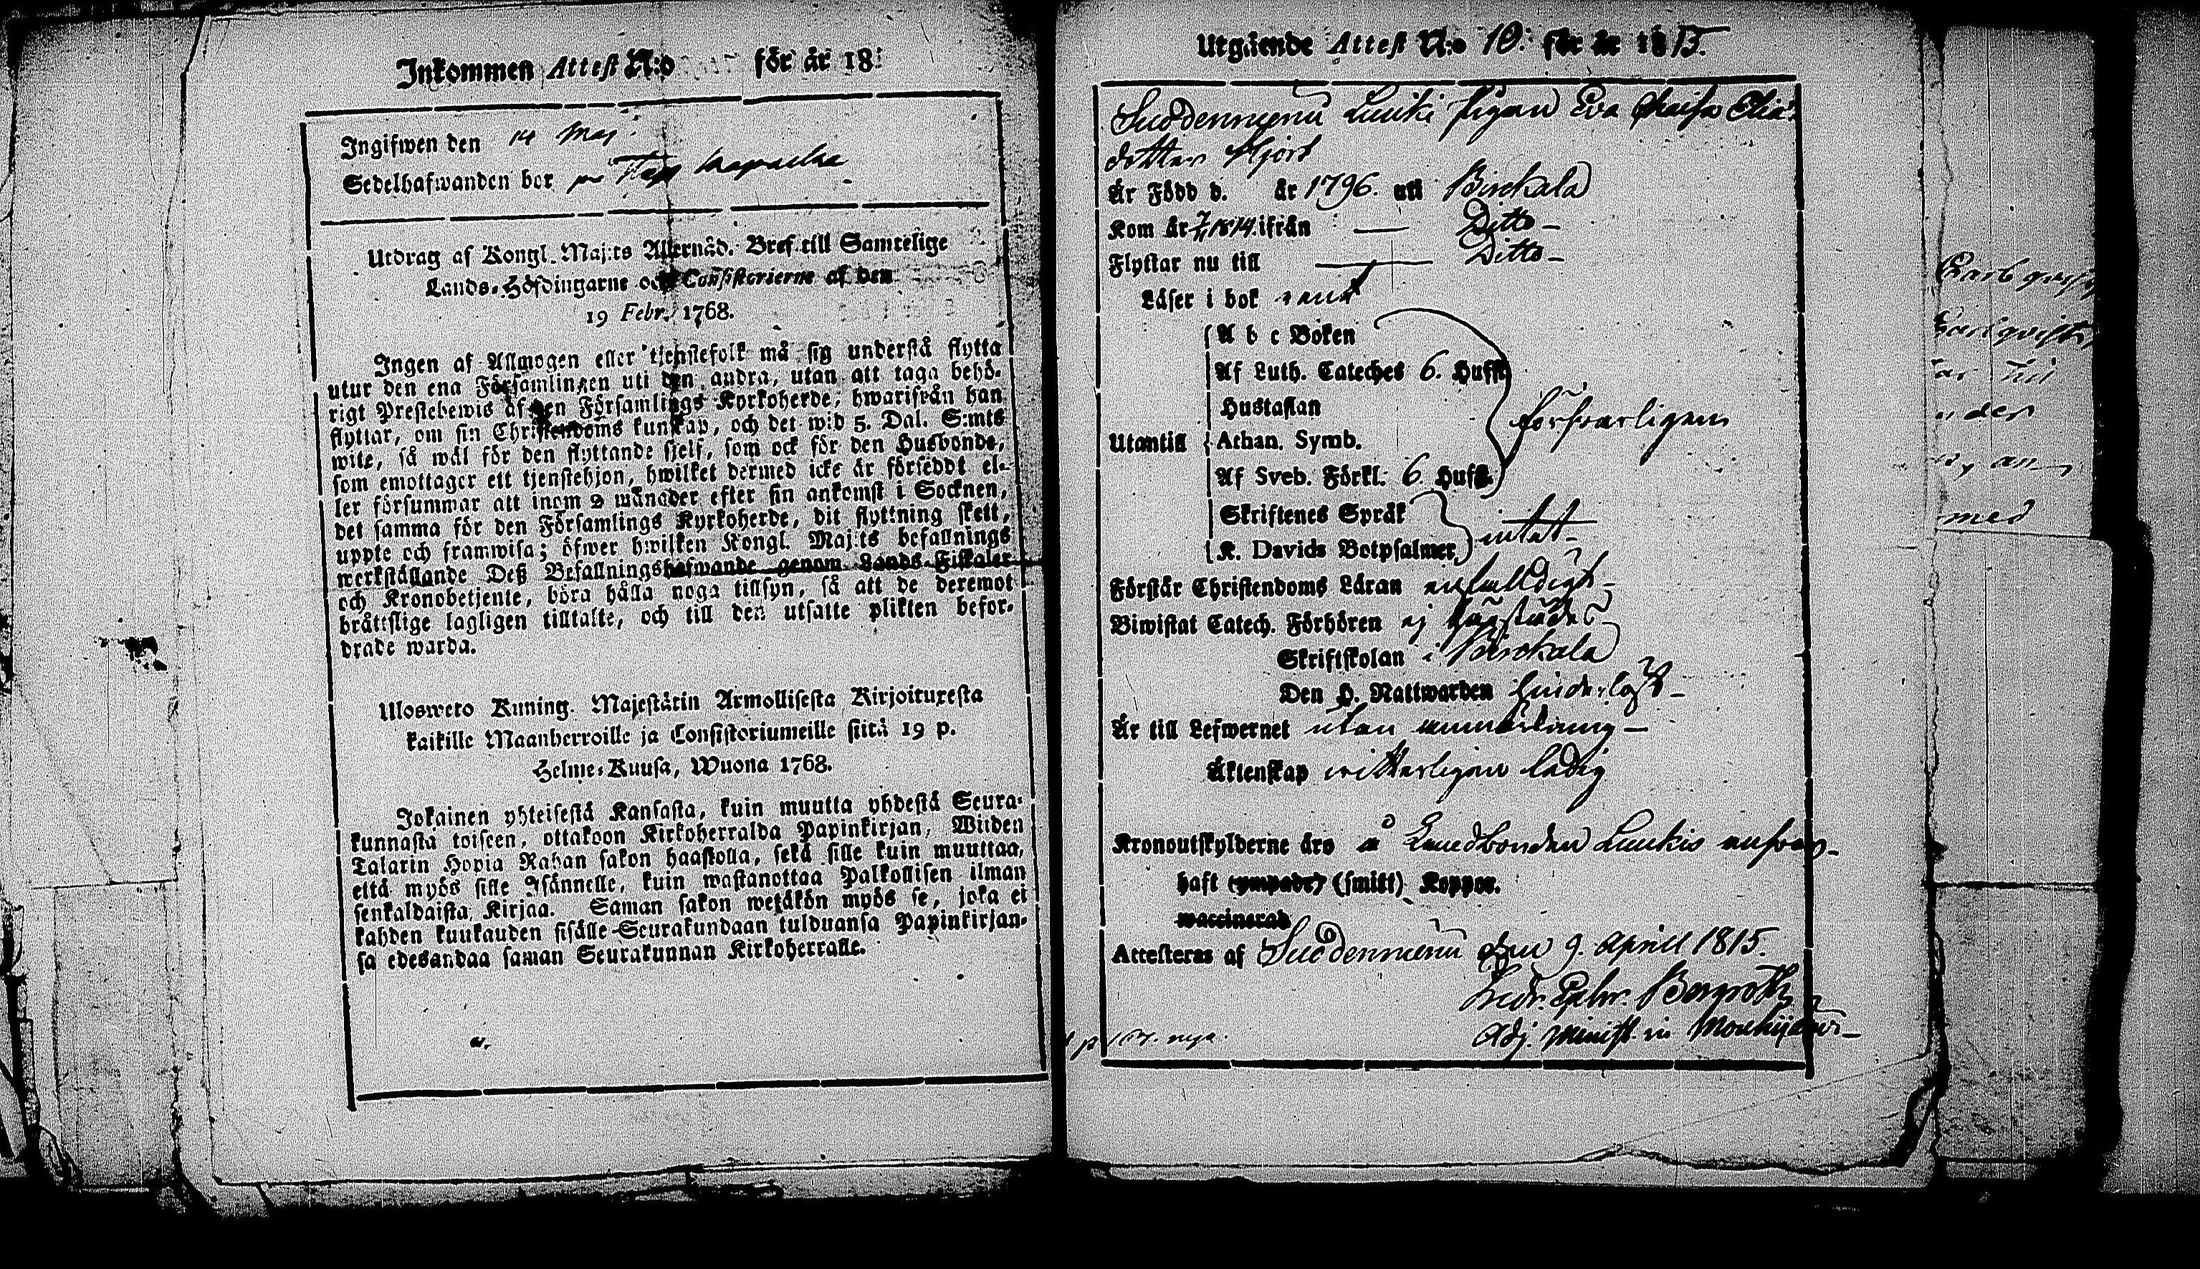 Inkommen Attest N:o för år 18
Ingifwen den 14 Maj
Sedelhafwanden bor
Utdrag af Kongl. Maj:ts Allernåd. Bref till Samtelige
Lands-Höfdingarne och Consistorierne af den
19 Febr. 1768.
Ingen af Allmogen eller tjenstefolk må sig understå flytta
utur den ena Församlingen uti den andra, utan att taga behö-
rigt Prestebewis af den Församlings Kyrkoherde, hwarifrån han
flyttar, om sin Christendoms kunskap, och det wid 5. Dal. S:mts
wite, så wäl för den flyttande sjelf, som ock för den Husbonde,
som emottager ett tjenstehjon, hwilket dermed icke är förseddt el-
ler försummar att inom 2 månader efter sin ankomst i Socknen,
det samma för den Församlings Kyrkoherde, dit flyttning skett,
uppte och framwisa; öfwer hwilken Kongl. Maj:ts befallnings
werkställande Deß Befallningshafwande genom Lands-Fiskaler
och Kronobetjente, böra hålla noga tillsyn, så att de deremot
brättslige lagligen tilltalte, och till den utsatte plikten befor-
drade warda.
Ulosweto Kuning. Majestätin Armollisesta Kirjoituxesta
kaikille Maanherroille ja Consistoriumeille siitä 19 p.
Helme-Kuusa, Wuona 1768.
Jokainen yhteisestä Kansasta, kuin muutta yhdestä Seura-
kunnasta toiseen, ottakoon Kirkoherralda Papinkirjan, Wiiden
Talarin Hopia Rahan sakon haastolla, sekä sille kuin muuttaa,
että myös sille Isännelle, kuin wastanottaa Palkollisen ilman
senkaldaista Kirjaa. Saman sakon wetäkön myös se, joka ei
kahden kuukauden sisälle Seurakundaan tulduansa Papinkirjan-
sa edesandaa saman Seurakunnan Kirkoherralle.
Utgående Attest N:o 10. för år 1815.
Suodenniemi Luuki pigan Eva Elias
dotter Hjort
Är Född d. år 1796. uti Birckala
Kom år 1814. ifrån — Ditto —
Flyttar nu till — Ditto —
Läser i bok rent
A b c Boken
Af Luth. Cateches 6. Hufst.
Hustaflan
Utantill Athan. Symb. försvarligen
Af Sveb. Förkl. 6. Hufst.
Skriftenes Språk
K. Davids Botpsalmer intet —
Förstår Christendoms Läran enfaldigt —
Biwistat Catech. Förhören ej
Skriftskolan i Birckala
Den H. Nattwarden hinderlöst —
Är till Lefwernet utan anmärkning —
Äktenskap witterligen ledig
Kronoutskylderne äro å Luukis
haft (ympade) (smitt) Koppor.
waccinerad
Attesteras af Suodenniemi den 9. April 1815.
Bergroth
Adj. Minist. in Mouhijärvi —